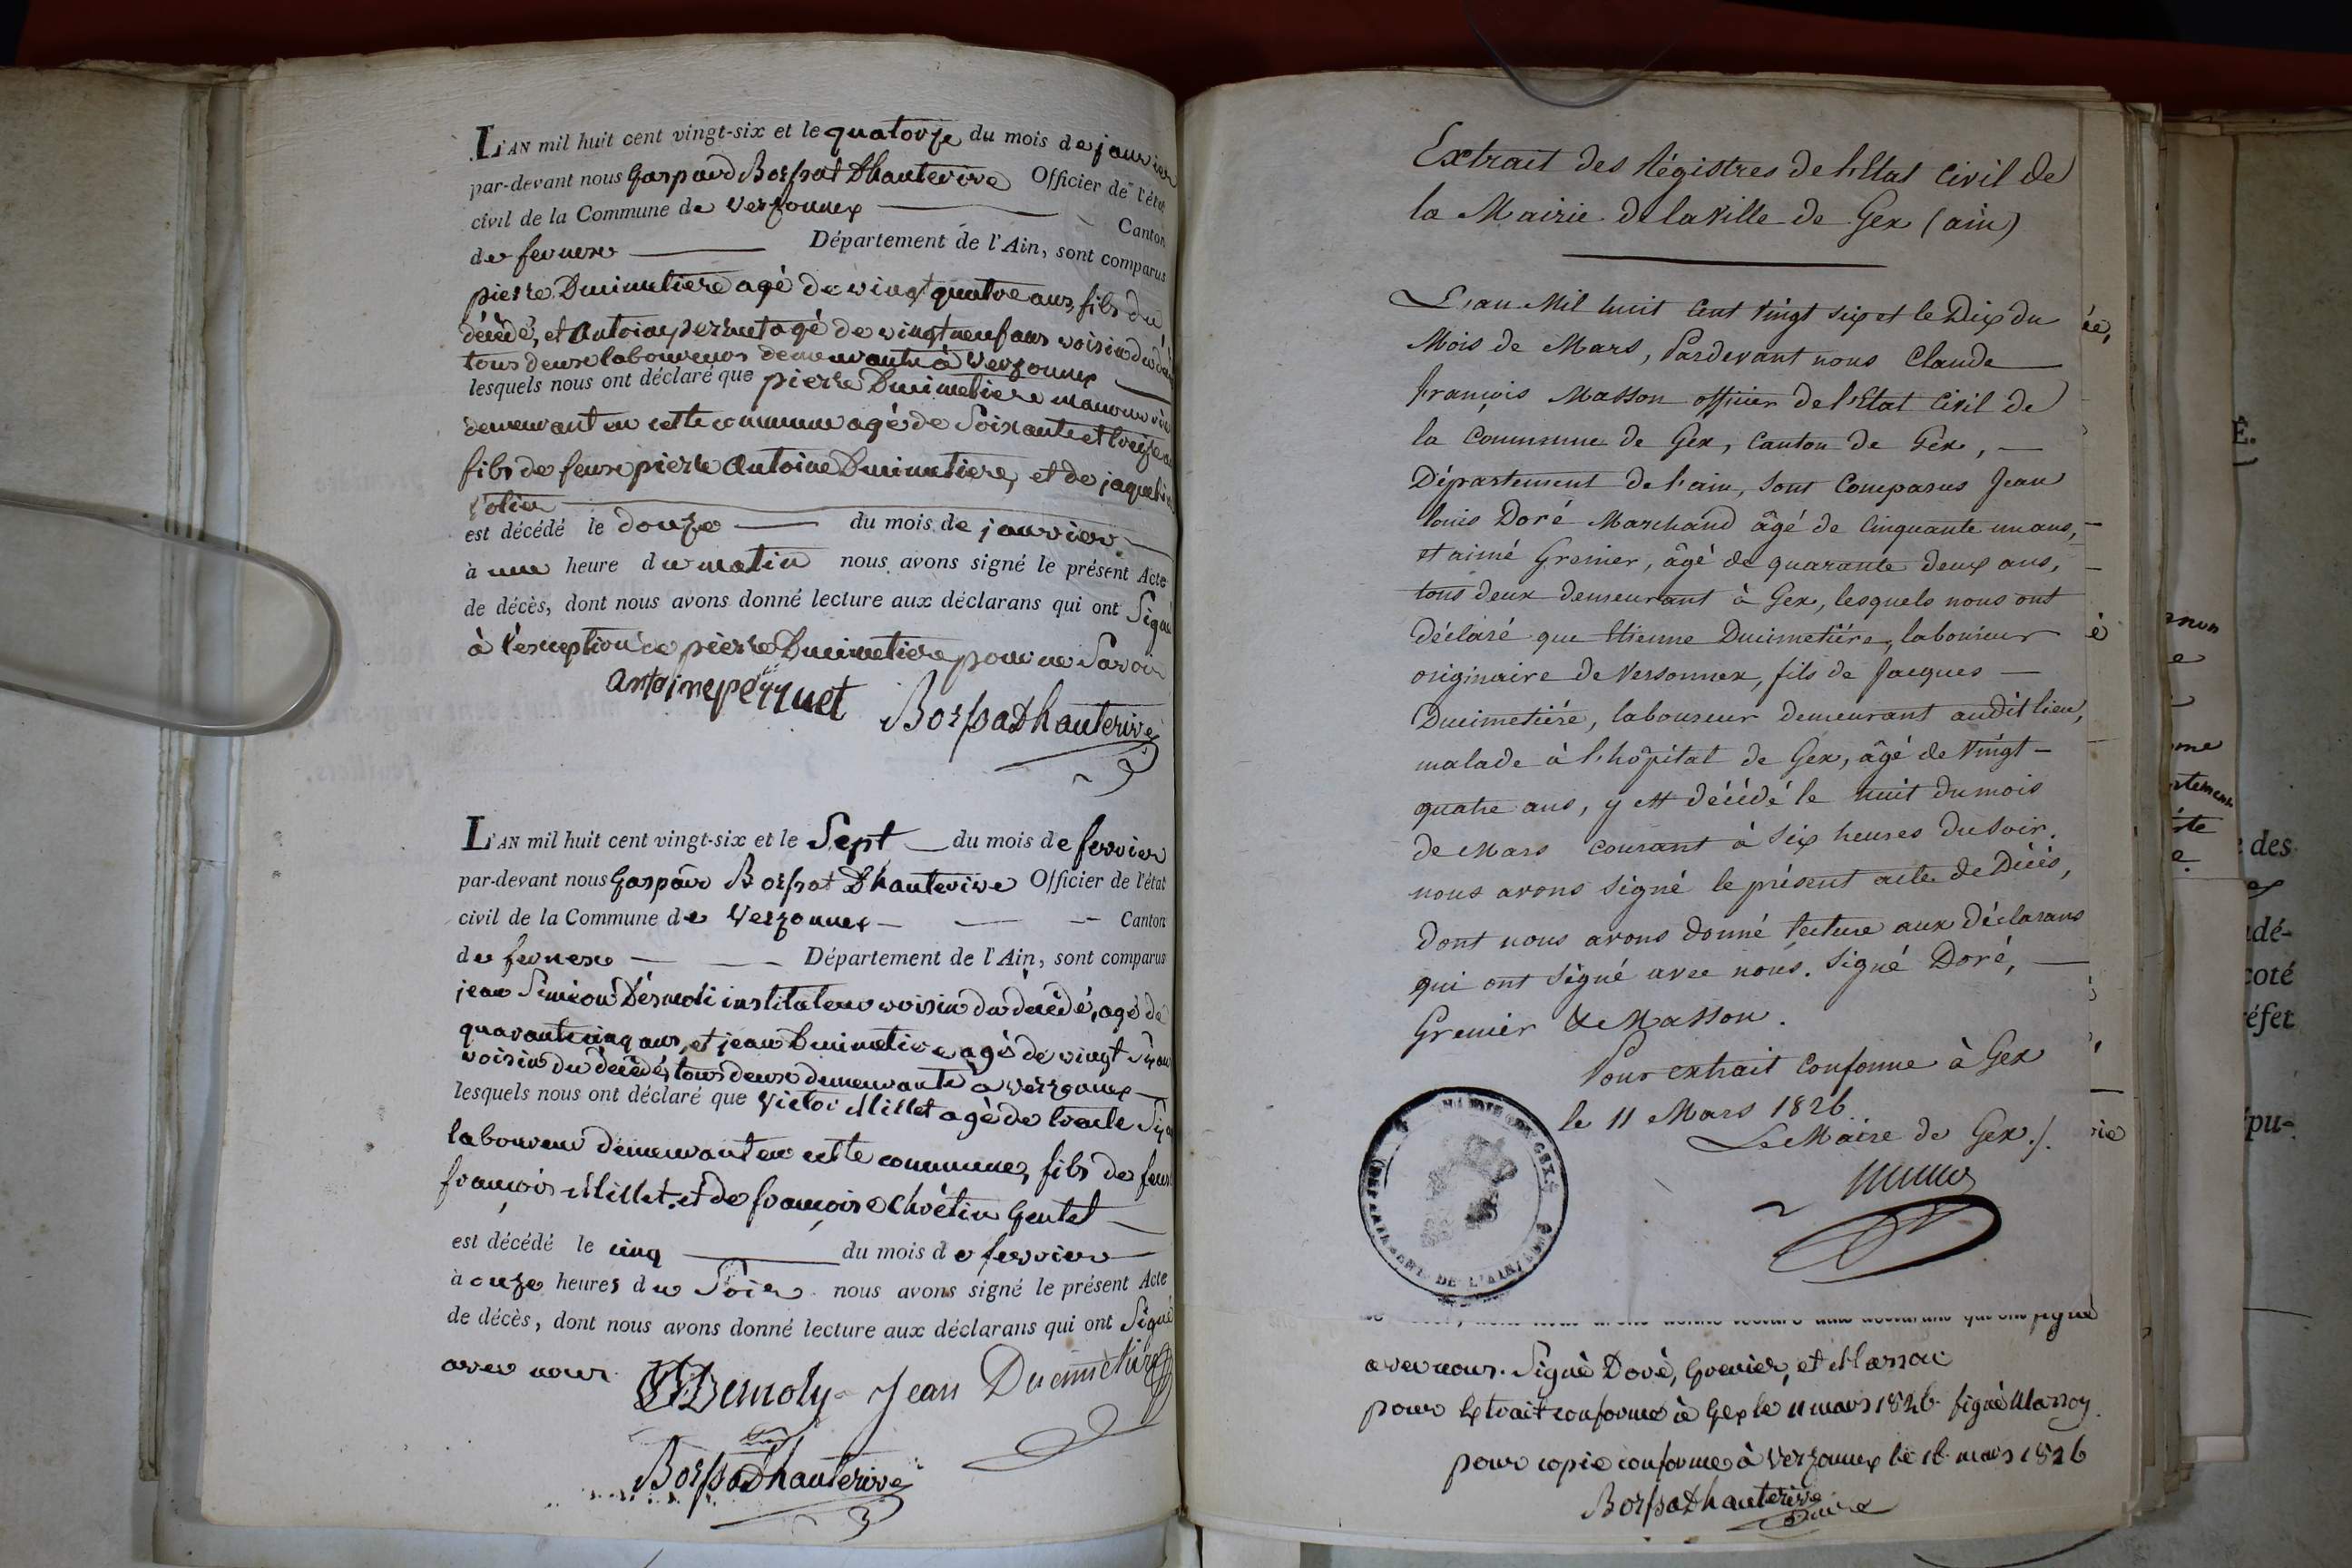 L'AN mil huit cent vingt-six et le quatorze du mois de janvier
par-devant nous Gaspard Borssat Dhauterive Officier de l'état
civil de la Commune de Verzonnex Canton
de fernex Département de l'Ain, sont comparus
pierre Ducimetiere agé de vingt quatre ans, fils du
décédé, et Antoine perruet agé de vingt neuf ans voisin du
tous deux laboureurs demeurants à Verzonnex
lesquels nous ont déclaré que pierre Ducimetiere
demeurant en cette commune agé de Soixante et treize
fils de feux pierre Antoine Ducimetiere, et de
est décédé le douze du mois de janvier
à une heure du matin nous avons signé le présent Acte
de décès, dont nous avons donné lecture aux déclarans qui ont Signé
à l'exception de pierre Ducimetiere pour ne Savoir
Borssat Dhauterive
L'AN mil huit cent vingt-six et le Sept du mois de fevrier
par-devant nous Gaspar Borssat Dhauterive Officier de l'état
civil de la Commune de Verzonnex Canton
de fernex Département de l'Ain, sont comparus
jean Simeon instituteur voisin du décédé, agé de
quarante cinq ans, et jean Ducimetiere agé de vingt
voisin du décédé, tous deux demeurants à Verzonnex
lesquels nous ont déclaré que Victor Millet agé de trente
laboureur demeurant en cette commune, fils de feux
françois Millet et de françoise Chrétin Gentet
est décédé le cinq du mois de fevrier
à onze heures du Soir nous avons signé le présent Acte
de décès, dont nous avons donné lecture aux déclarans qui ont Signé
avec nous.
Jean Ducimetiere
Borssat Dhauterive
Extrait des Régistres de l'Etat Civil de
la Mairie de la Ville de Gex (ain)
L'an Mil huit Cent Vingt Six et le Dix du
Mois de Mars, Pardevant nous Claude
françois Masson officier de l'Etat Civil de
la Commune de Gex, Canton de Gex, —
Département de l'ain, Sont Comparus Jean
louis Doré Marchand âgé de Cinquante un ans,
et aimé Grenier, âgé de quarante deux ans,
tous deux demeurant à Gex, lesquels nous ont
déclaré que Etienne Ducimetière, laboureur
originaire de Versonnex, fils de Jacques —
Ducimetière, laboureur demeurant audit lieu,
malade à l'hôpital de Gex, âgé de Vingt-
quatre ans, y est décédé le huit du mois
de Mars courant à Six heures du Soir.
nous avons signé le présent acte de Décès,
Dont nous avons donné lecture aux Déclarans
qui ont signé avec nous. Signé Doré, —
Grenier & Masson.
Pour extrait Conforme à Gex
le 11 Mars 1826
Le Maire de Gex
DE L'AIN
avec nous. Signé Doré, Grenier, et Masson
pour Extrait conforme à Gex le 11 mars 1826 signé Masson
pour copie conforme à Verzonnex le 16 mars 1826
Borssat Dhauterive